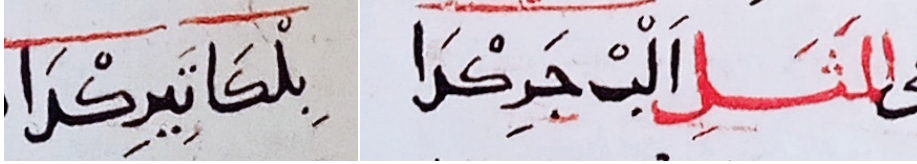 المَثَلِ اَلْبْ جَرِكْدَا
بِلْكَا تَيِرِكْدَا